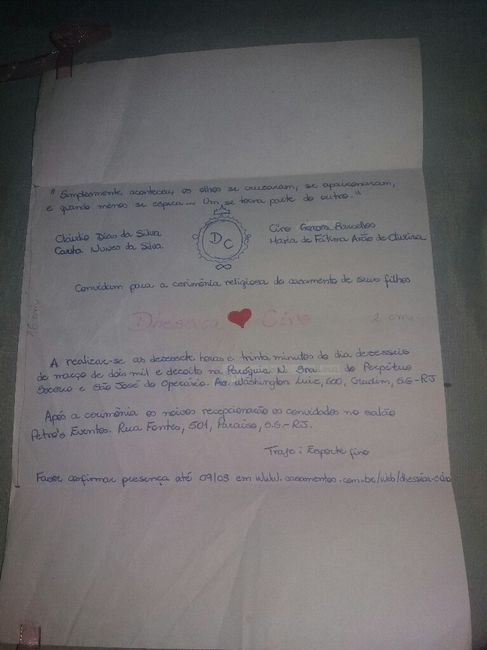 "Simplesmente aconteceu, os olhos se cruzaram, se apaixonaram,
e quando menos se espera... Um se torna parte do outro."
Cláudio Dias da Silva
Carla Nunes da Silva
DC
Ciro Barcellos
Maria de Fátima de Oliveira
Convidam para a cerimônia religiosa do casamento de seus filhos
Dhessica Ciro
2 cm
16 cm
A realizar-se as dezessete horas e trinta minutos do dia dezesseis
de março de dois mil e dezoito na Paróquia N. Sra do Perpétuo
Socorro e São José do Operário. Av. Washington Luiz, 600, Gradim, S.G-RJ
Após a cerimônia os noivos recepcionarão os convidados no salão
Petro's Eventos. Rua Fontes, 501, Paraíso, S.G-RJ.
Traje: Esporte fino
Favor confirmar presença até 09/03 em www.casamentos.com.br/web/